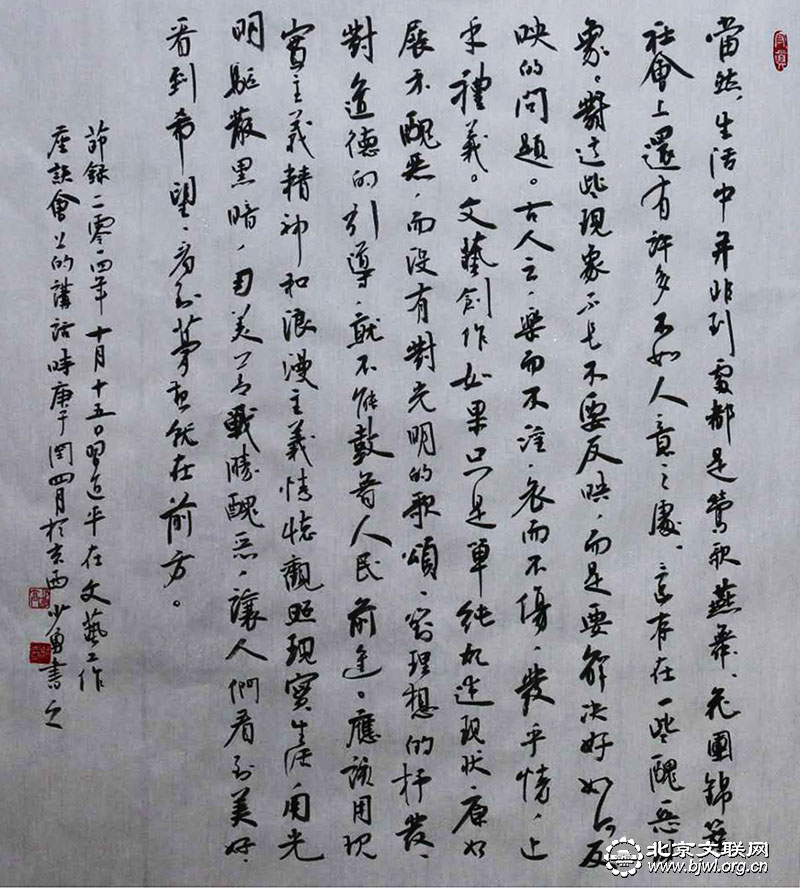 當然，生活中并非到處都是鶯歌燕舞、花團錦簇，
社會上還有許多不如人意之處、還存在一些醜惡現
象。對這些現象不是不要反映，而是要解決好如何反
映的問題。古人云，樂而不淫，哀而不傷，發乎情，止
乎禮義。文藝創作如果只是單純記述現狀、原始
展示醜惡，而沒有對光明的歌頌、對理想的抒發、
對道德的引導，就不能鼓舞人民前進。應該用現
實主義精神和浪漫主義情懷觀照現實生活，用光
明驅散黑暗，用美善戰勝醜惡，讓人們看到美好、
看到希望、看到夢想就在前方。
節錄二零一四年十月十五日習近平在文藝工作
座談會上的講話時庚子閏四月於京西少勇書之
北京文联网
www.bjwl.org.cn